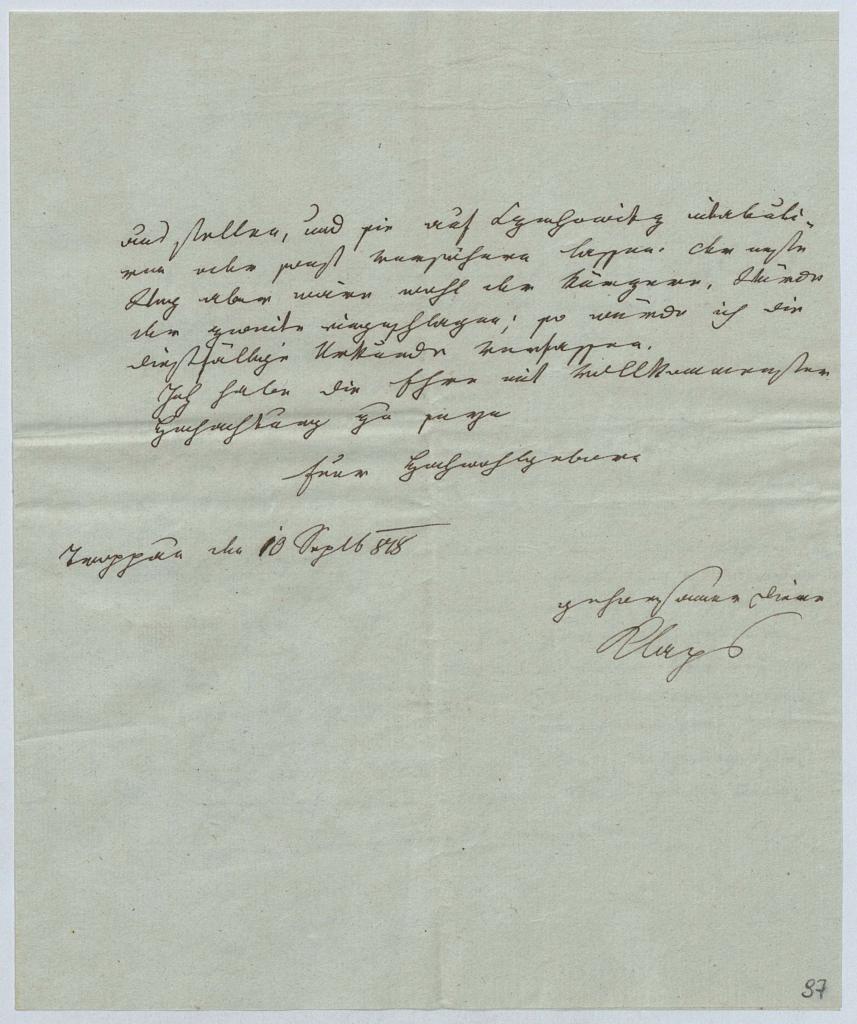 aus stellen, und sie auf intabuli-
ren oder sonst versichern lassen. Der erste
Weg aber wäre wohl der kürzere. Würde
der zweite eingeschlagen; so würde ich die
diesfällige Urkunde verfassen.
Ich habe die Ehre mit vollkommenster
Hochachtung zu seyn
Euer Hochwohlgeboren
Troppau den 10 Septb 818
gehorsamer Diener
37